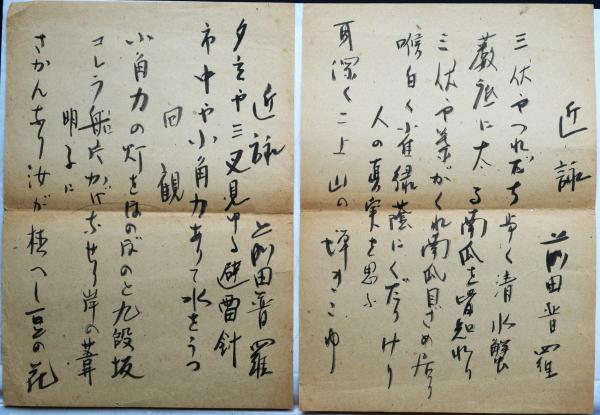 近詠 前田普羅
三伏やつれだち歩く清水蟹
藪底に太る南瓜を皆知れり
三伏や葉がくれ南瓜目ざめ居り
喉白く雀緑蔭にくだりけり
人の真実を思ふ
耳深く二上山の蝉きこゆ
近詠 前田普羅
夕立や三叉見ゆる避雷針
市中や小角力ありて水をうつ
回観
小角力の灯をほのぼのと九段坂
コレラ船片かげなせり岸の葦
明子に
さかんなり汝が植へし豆の花